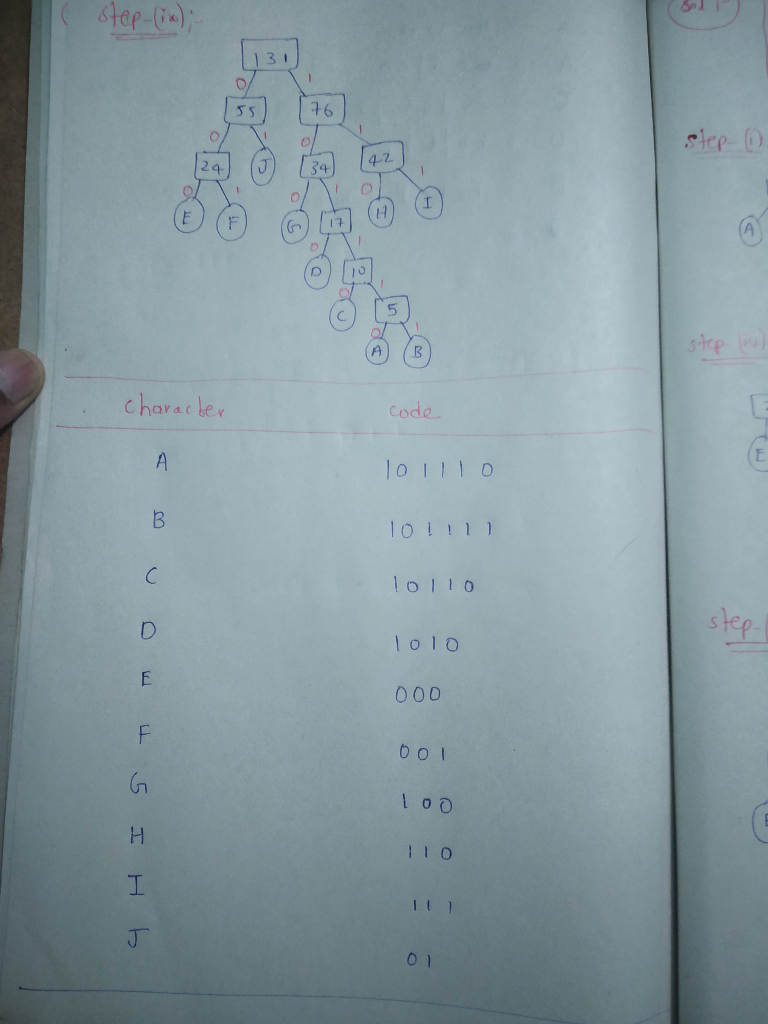 step-(ix):-
131
0 1
55 76
0 1 0 1
24 J 34 42
0 1 0 1 0 1
E F G 17 H I
0 1
D 10
0 1
C 5
0 1
A B
character code
A 101110
B 101111
C 10110
D 1010
E 000
F 001
G 100
H 110
I 111
J 01
step-(i)
A
step-(iv)
E
step-